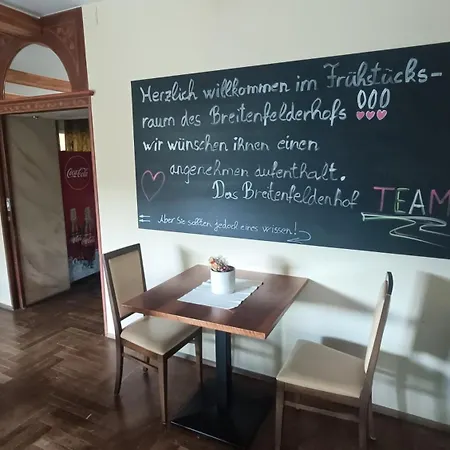 Coca-Cola
Herzlich willkommen im Frühstücks-
raum des Breitenfelderhofs !!!
wir wünschen ihnen einen
angenehmen aufenthalt.
Das Breitenfeldenhof TEAM
= Aber Sie sollten jedoch eines wissen!